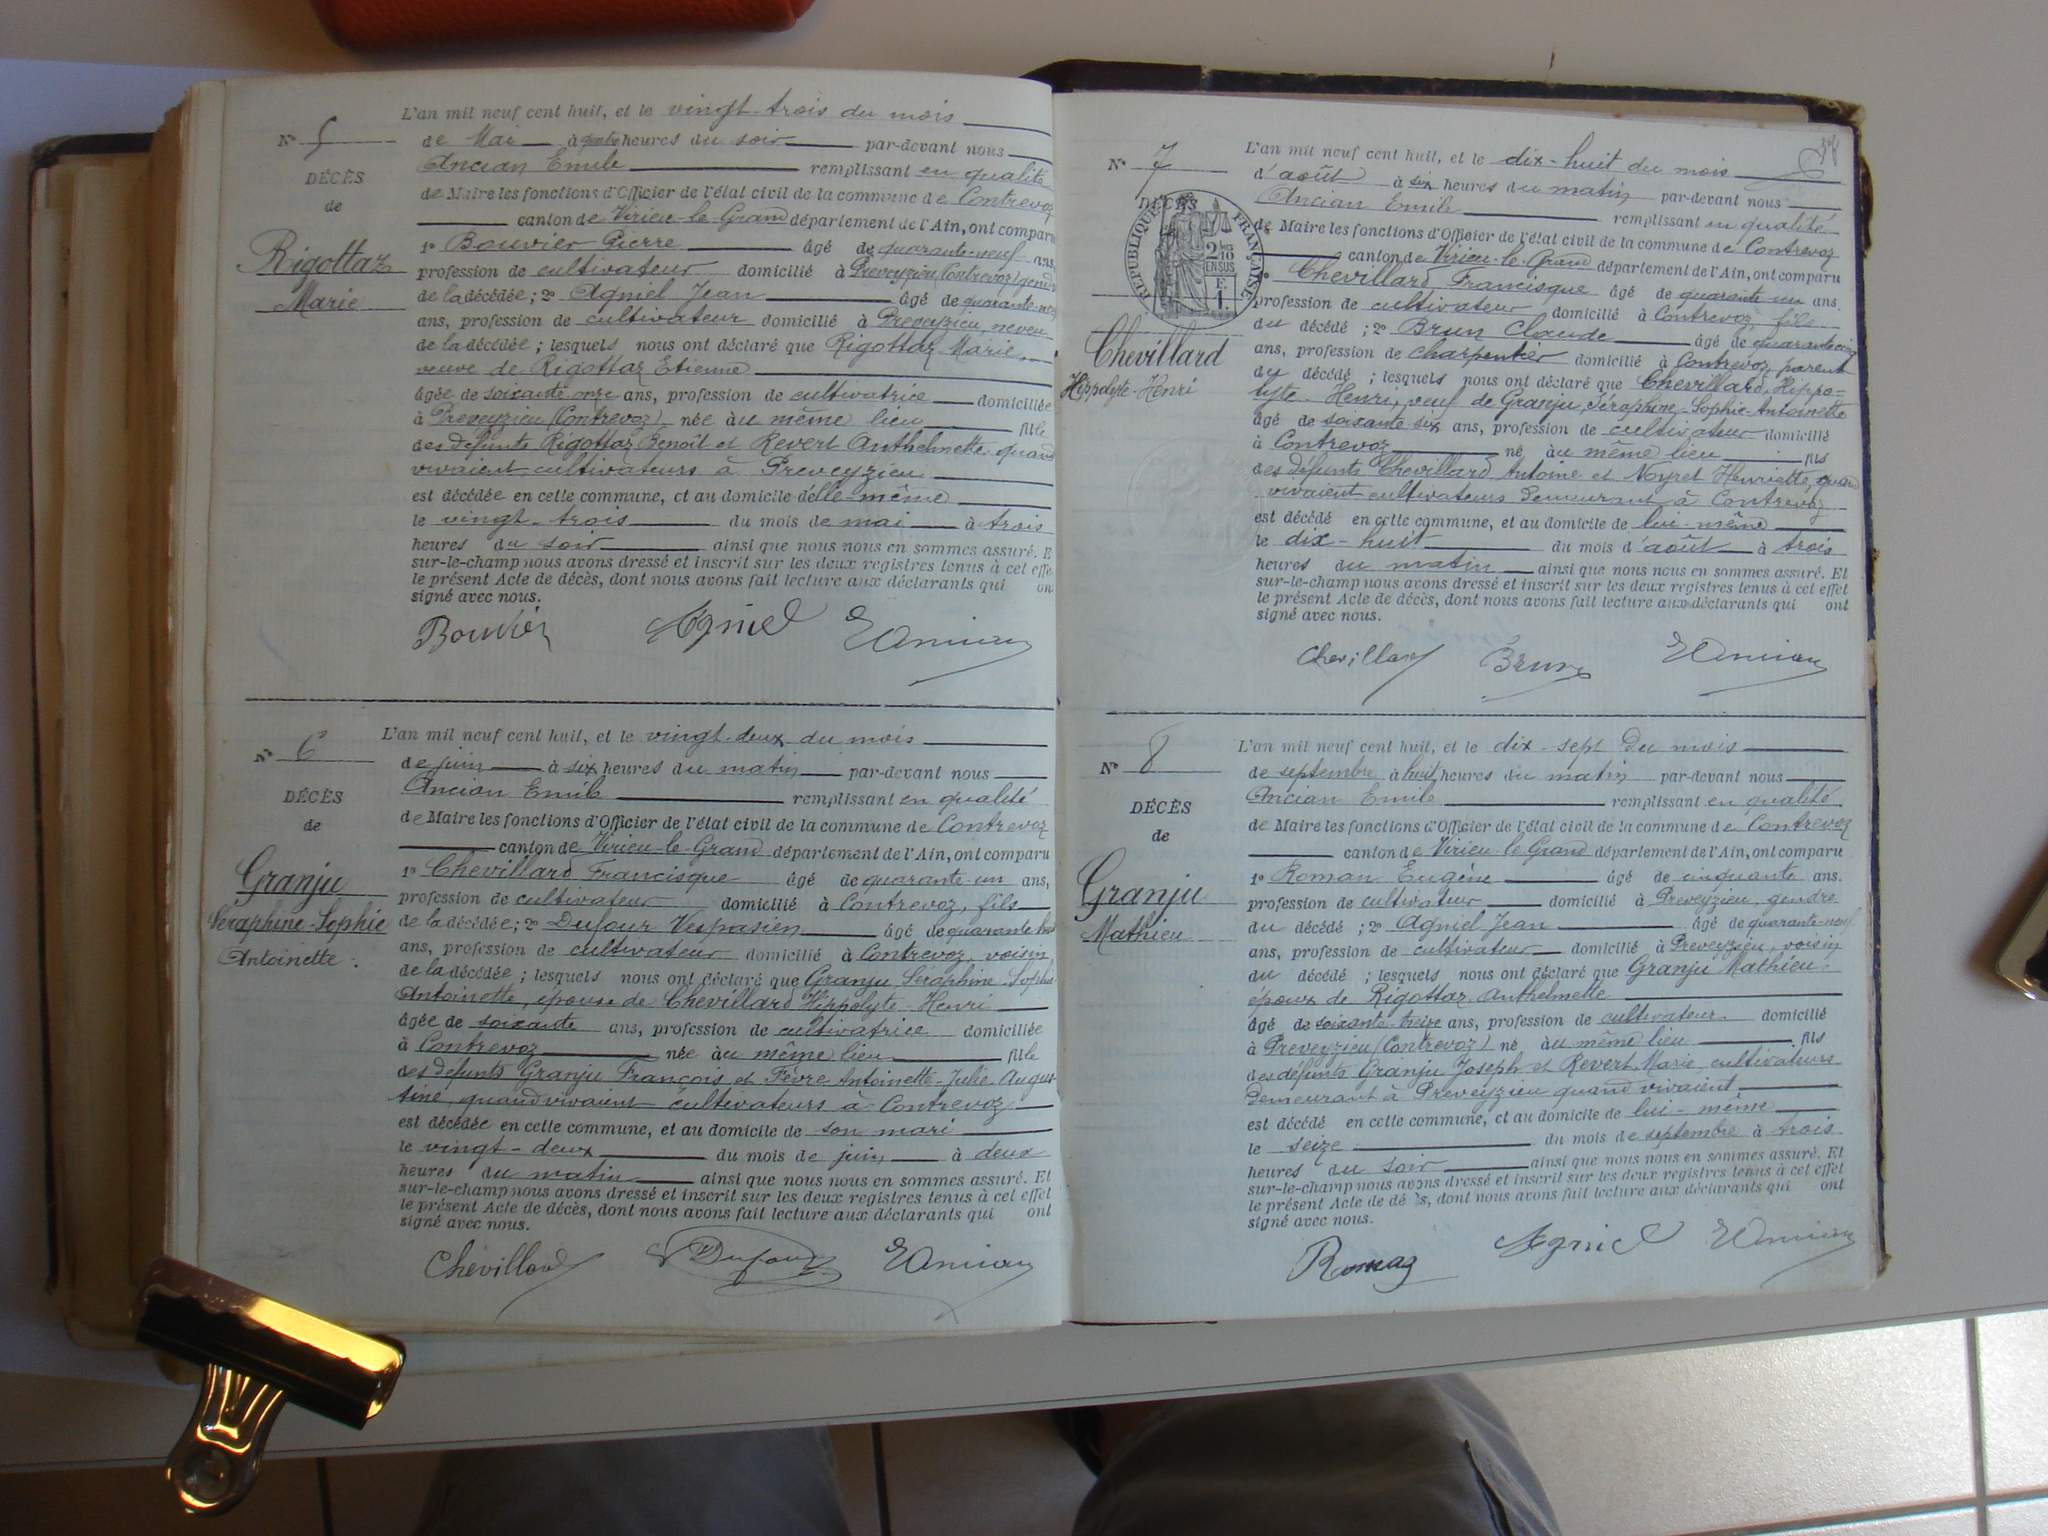 L'an mil neuf cent huit, et le vingt-trois du mois
N° 5
de Mai à quatre heures du soir par-devant nous
Ancian Emile remplissant en qualité
DÉCÈS
de Maire les fonctions d'Officier de l'état civil de la commune de Contrevoz
de
canton de Virieu-le-Grand département de l'Ain, ont comparu
Rigottaz
1° Bouvier Pierre âgé de quarante-neuf ans,
profession de cultivateur domicilié à Preveyzieu (Contrevoz) gendre
Marie
de la décédée; 2° Agniel Jean âgé de quarante-neuf
ans, profession de cultivateur domicilié à Preveyzieu, neveu
de la décédée; lesquels nous ont déclaré que Rigottaz Marie,
veuve de Rigottaz Etienne
âgée de soixante onze ans, profession de cultivatrice domiciliée
à Preveyzieu (Contrevoz), née au même lieu fille
des défunts Rigottaz Benoît et Revert Anthelmette quand
vivaient cultivateurs à Preveyzieu
est décédée en cette commune, et au domicile d'elle-même
le vingt-trois du mois de mai à trois
heures du soir ainsi que nous nous en sommes assuré. Et
sur-le-champ nous avons dressé et inscrit sur les deux registres tenus à cet effet
le présent Acte de décès, dont nous avons fait lecture aux déclarants qui ont
signé avec nous.
Bouvier Agniel EAncian
L'an mil neuf cent huit, et le vingt-deux du mois
N° 6
de juin à six heures du matin par-devant nous
Ancian Emile remplissant en qualité
DÉCÈS
de Maire les fonctions d'Officier de l'état civil de la commune de Contrevoz
de
canton de Virieu-le-Grand département de l'Ain, ont comparu
Granju
1° Chevillard Francisque âgé de quarante-un ans,
profession de cultivateur domicilié à Contrevoz, fils
Séraphine-Sophie
de la décédée; 2° Dufour Vespasien âgé de quarante
Antoinette
ans, profession de cultivateur domicilié à Contrevoz, voisin
de la décédée; lesquels nous ont déclaré que Granju Séraphine-Sophie
Antoinette, épouse de Chevillard Hippolyte-Henri
âgée de soixante ans, profession de cultivatrice domiciliée
à Contrevoz née au même lieu fille
des défunts Granju François et Fèvre Antoinette-Julie-Augus-
tine, quand vivaient cultivateurs à Contrevoz
est décédée en cette commune, et au domicile de son mari
le vingt-deux du mois de juin à deux
heures du matin ainsi que nous nous en sommes assuré. Et
sur-le-champ nous avons dressé et inscrit sur les deux registres tenus à cet effet
le présent Acte de décès, dont nous avons fait lecture aux déclarants qui ont
signé avec nous.
Chevillard Dufour EAncian
L'an mil neuf cent huit, et le dix-huit du mois
N° 7
d'août à six heures du matin par-devant nous
DÉCÈS
Ancian Emile remplissant en qualité
RÉPUBLIQUE FRANÇAISE
2/10 EN SUS
F. 1.
de Maire les fonctions d'Officier de l'état civil de la commune de Contrevoz
canton de Virieu-le-Grand département de l'Ain, ont comparu
Chevillard Francisque âgé de quarante un ans
profession de cultivateur domicilié à Contrevoz, fils
Chevillard
du décédé; 2° Brun Claude âgé de quarante cinq
ans, profession de charpentier domicilié à Contrevoz, parent
Hippolyte-Henri
du décédé; lesquels nous ont déclaré que Chevillard, Hippo=
lyte-Henri, veuf de Granju, Séraphine-Sophie-Antoinette
âgé de soixante six ans, profession de cultivateur domicilié
à Contrevoz né au même lieu fils
des défunts Chevillard Antoine et Noyret Henriette, quand
vivaient cultivateurs demeurant à Contrevoz
est décédé en cette commune, et au domicile de lui-même
le dix-huit du mois d'août à trois
heures du matin ainsi que nous nous en sommes assuré. Et
sur-le-champ nous avons dressé et inscrit sur les deux registres tenus à cet effet
le présent Acte de décès, dont nous avons fait lecture aux déclarants qui ont
signé avec nous.
Chevillard Brun EAncian
L'an mil neuf cent huit, et le dix-sept du mois
N° 8
de septembre à huit heures du matin par-devant nous
Ancian Emile remplissant en qualité
DÉCÈS
de Maire les fonctions d'Officier de l'état civil de la commune de Contrevoz
de
canton de Virieu-le-Grand département de l'Ain, ont comparu
Granju
1° Roman Eugène âgé de cinquante ans.
profession de cultivateur domicilié à Preveyzieu, gendre
Mathieu
du décédé; 2° Agniel Jean âgé de quarante-neuf
ans, profession de cultivateur domicilié à Preveyzieu, voisin
du décédé; lesquels nous ont déclaré que Granju Mathieu
époux de Rigottaz Anthelmette
âgé de soixante-treize ans, profession de cultivateur domicilié
à Preveyzieu (Contrevoz) né au même lieu fils
des défunts Granju Joseph et Revert Marie, cultivateurs
demeurant à Preveyzieu quand vivaient
est décédé en cette commune, et au domicile de lui-même
le seize du mois de septembre à trois
heures du soir ainsi que nous nous en sommes assuré. Et
sur-le-champ nous avons dressé et inscrit sur les deux registres tenus à cet effet
le présent Acte de décès, dont nous avons fait lecture aux déclarants qui ont
signé avec nous.
Roman Agniel EAncian